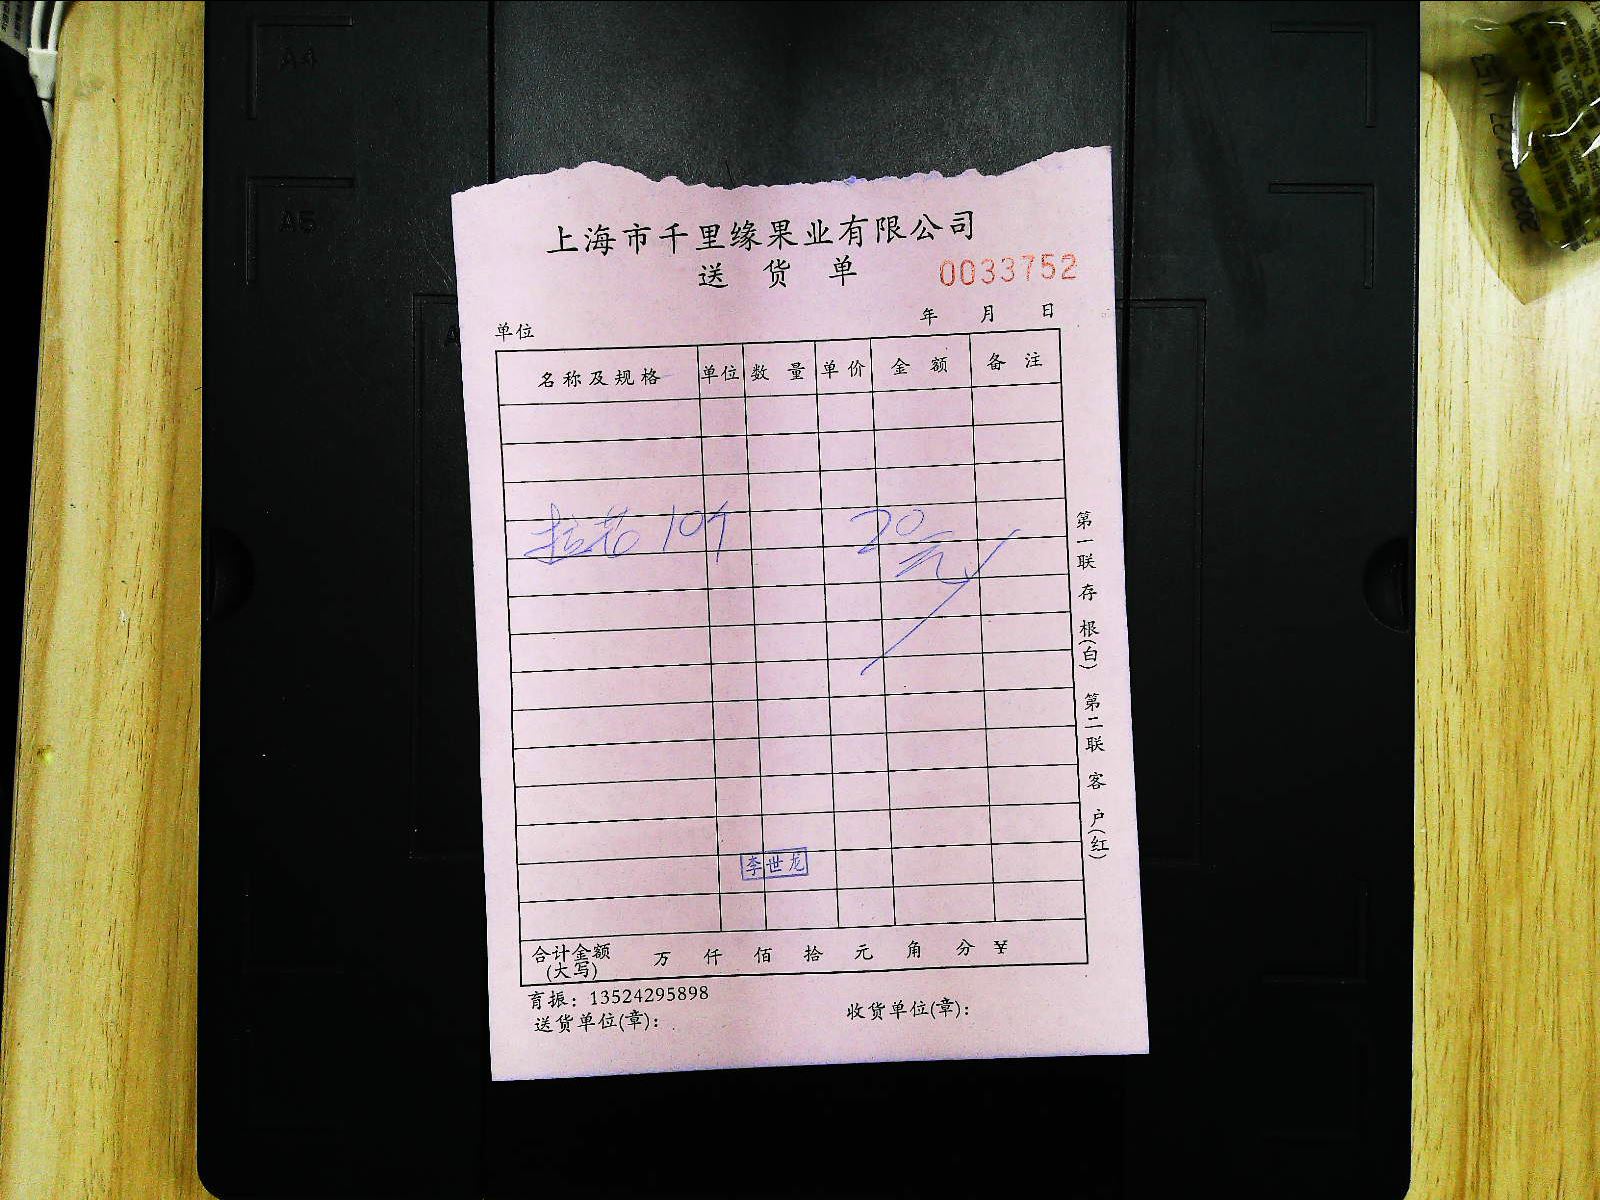 上海市千里缘果业有限公司
送 货 单
0033752
年 月 日
单位
名称及规格 单位 数量 单价 金额 备注
拉芯 10个 20元
李世龙
合计金额(大写) 万 仟 佰 拾 元 角 分 ¥
育振：13524295898
送货单位(章)： 收货单位(章)：
第一联存根(白) 第二联客户(红)
A4
A5